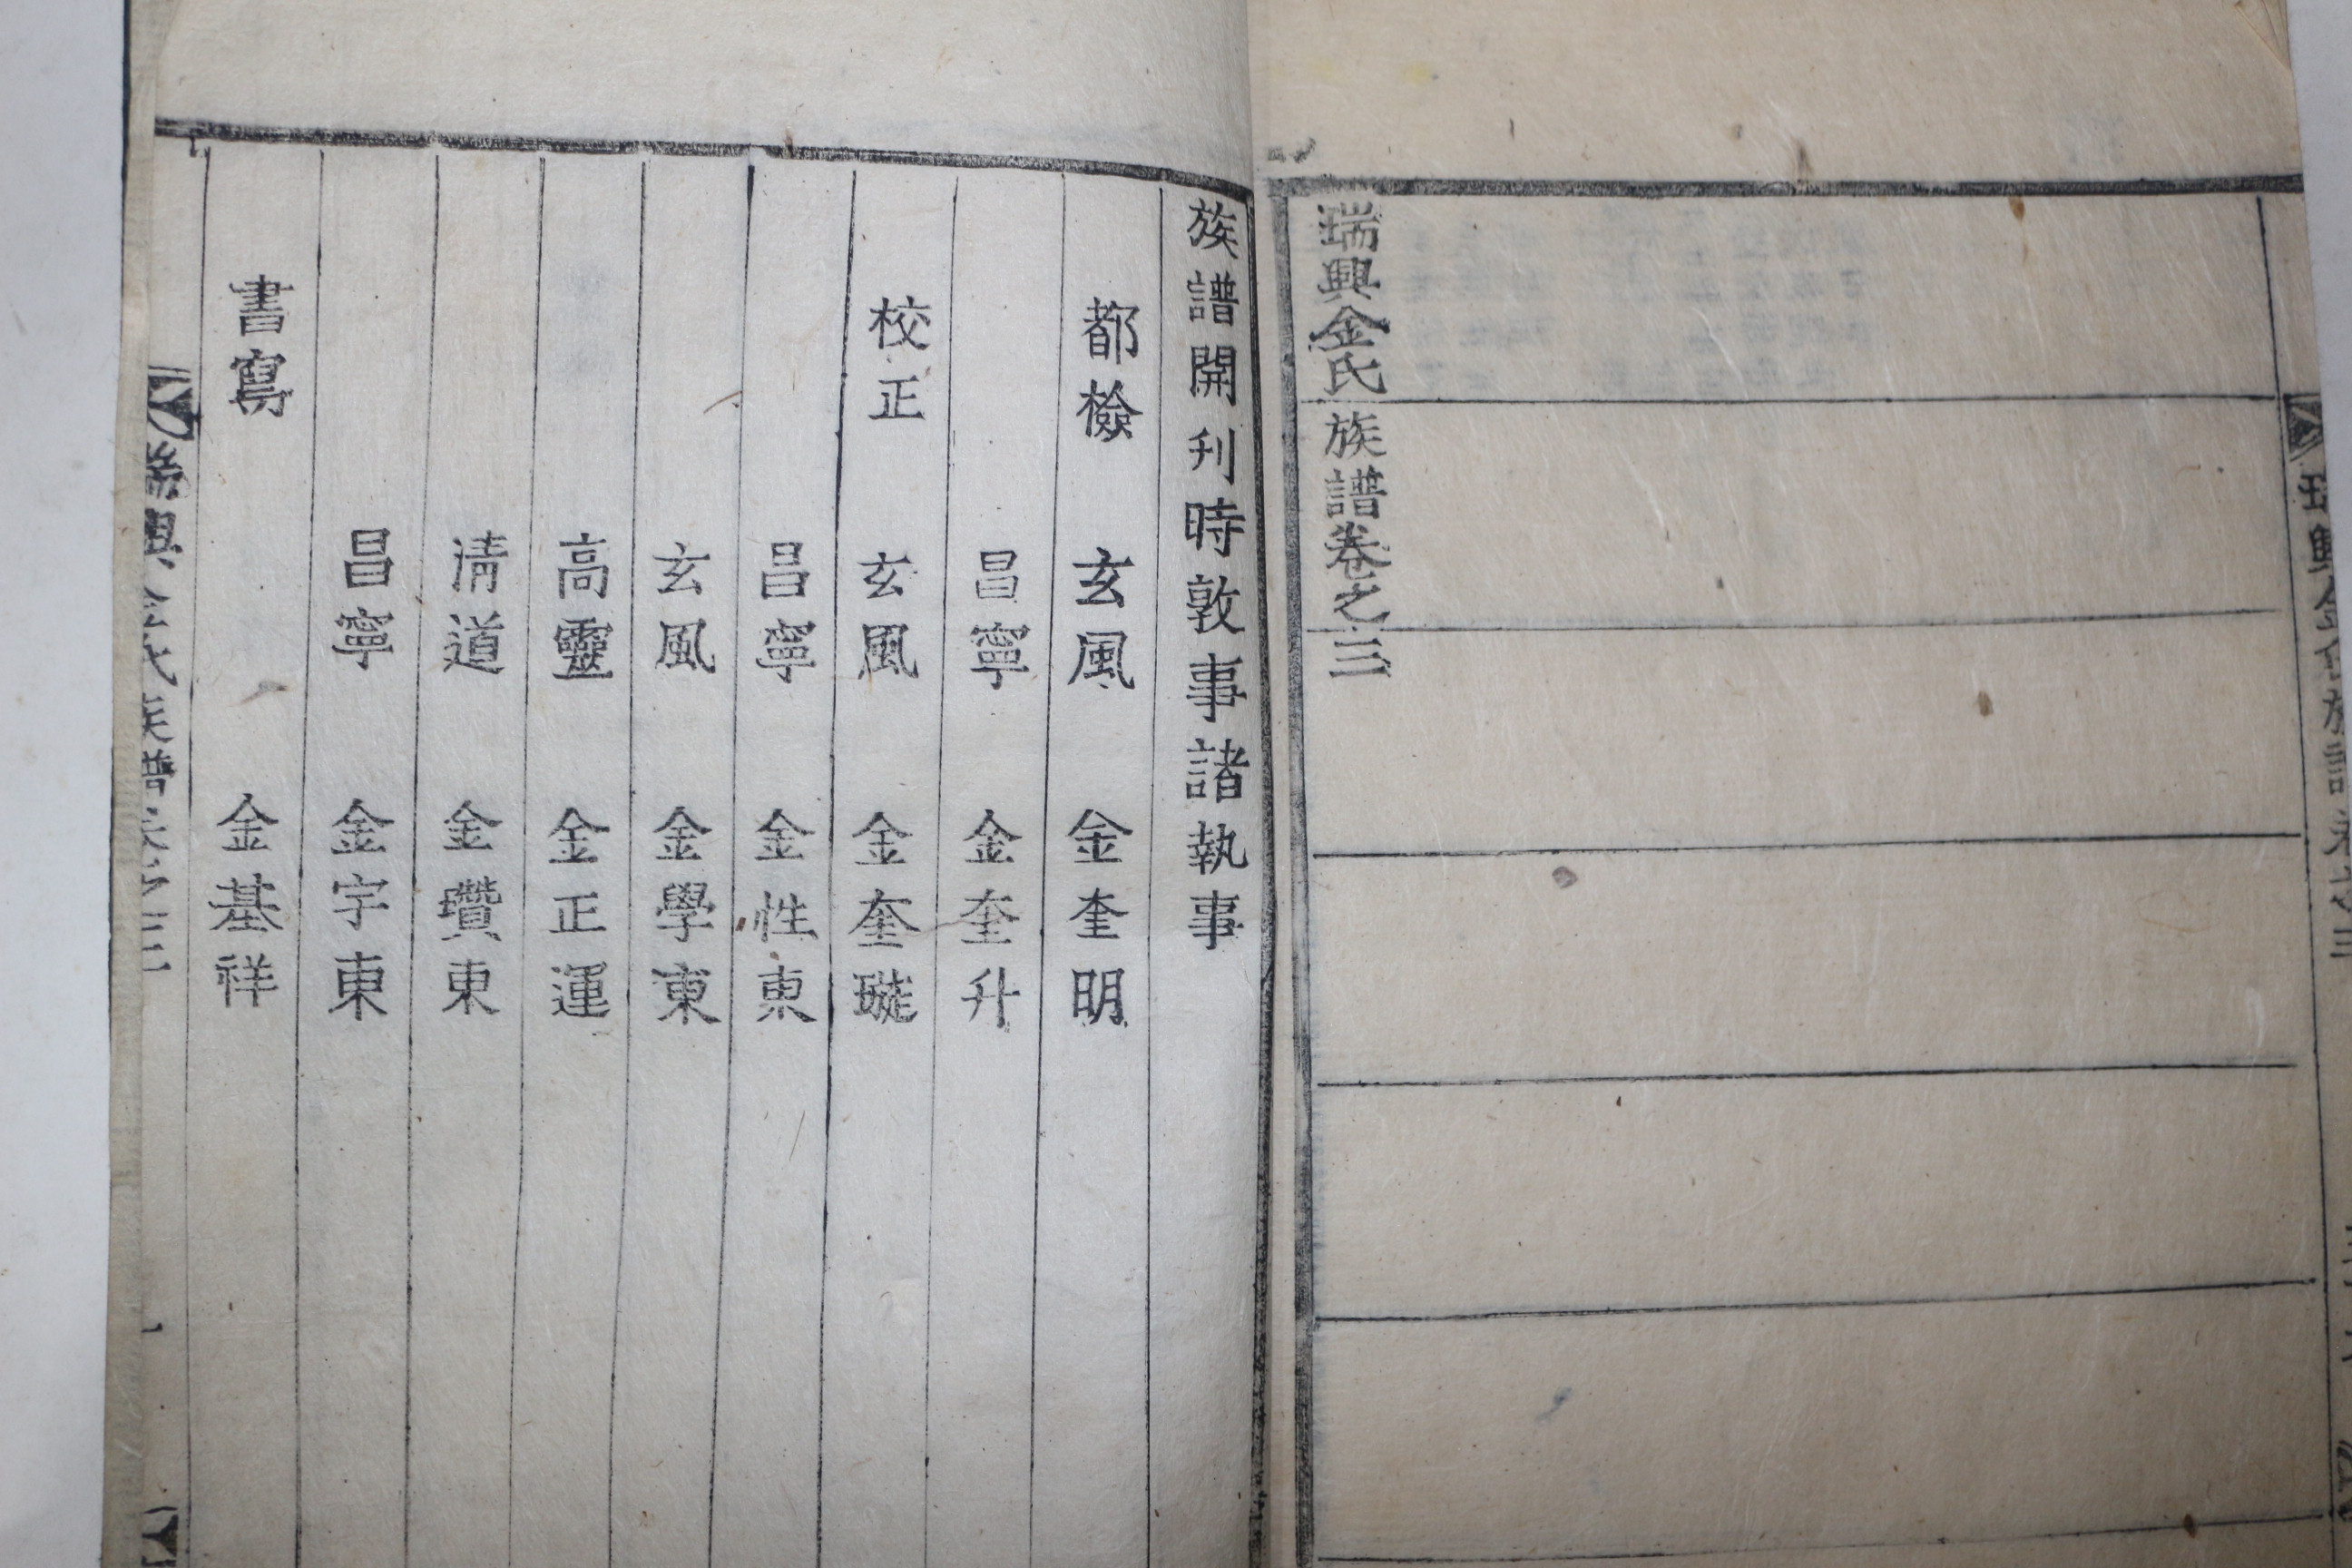 瑞興金氏族譜卷之三
族譜開刋時敦事諸執事
都檢 玄風 金奎明
昌寧 金奎升
校正 玄風 金奎璇
昌寧 金性東
玄風 金學東
高靈 金正運
淸道 金瓚東
昌寧 金宇東
書寫 金基祥